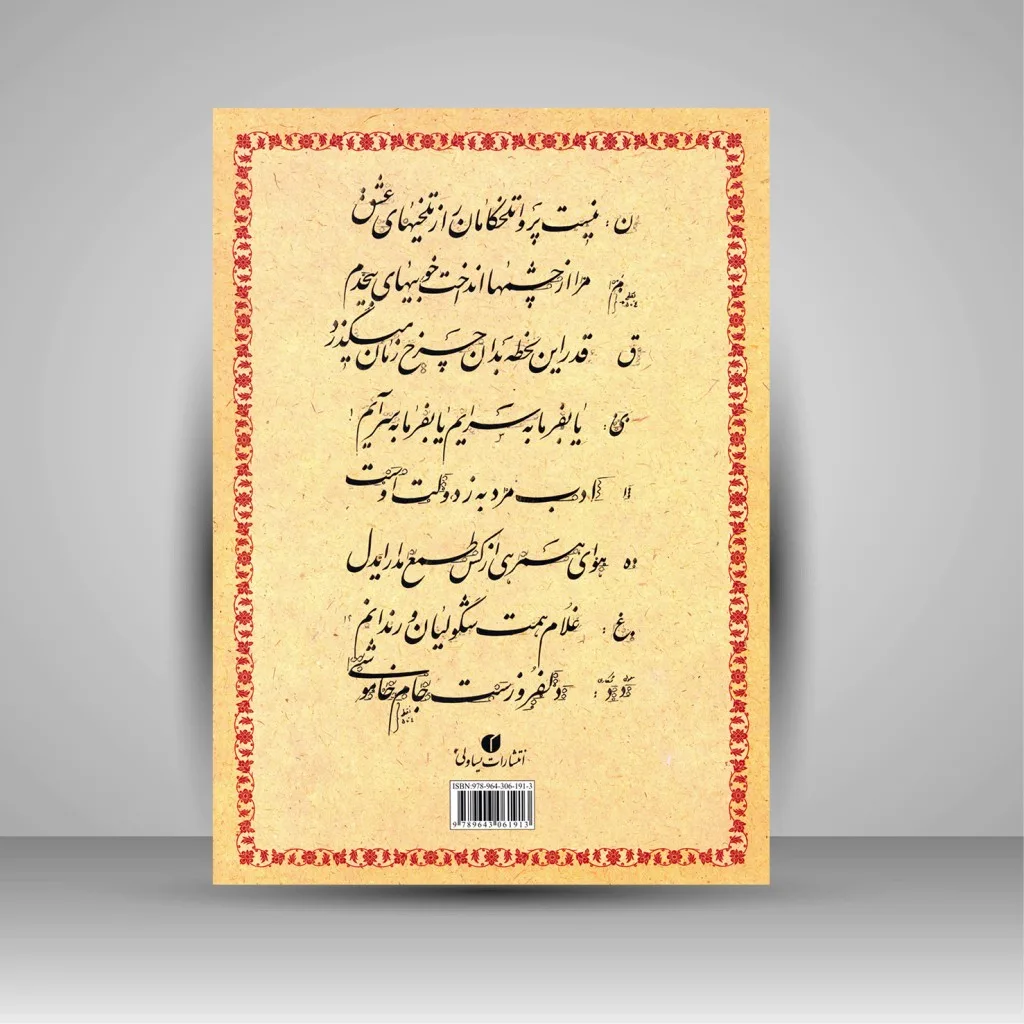 ن : نیست پروا تلخکامان را از تلخیهای عشق
م مرا از چشمها انداخت خوبیهای بیحدم
ق قدر این لحظه بدان چرخ زمان میگذرد
ی : یا بفرما به سرایم یا بفرما به سر آیم
ا ادب مرد به ز دولت اوست
ه هوای همسری از کس طمع مدار ایدل
غ : غلام همت شنگولیان و رندانم
و : دلفروزست جام خاموشی
انتشارات یساولی
ISBN:978-964-306-191-3
9 789643 061913